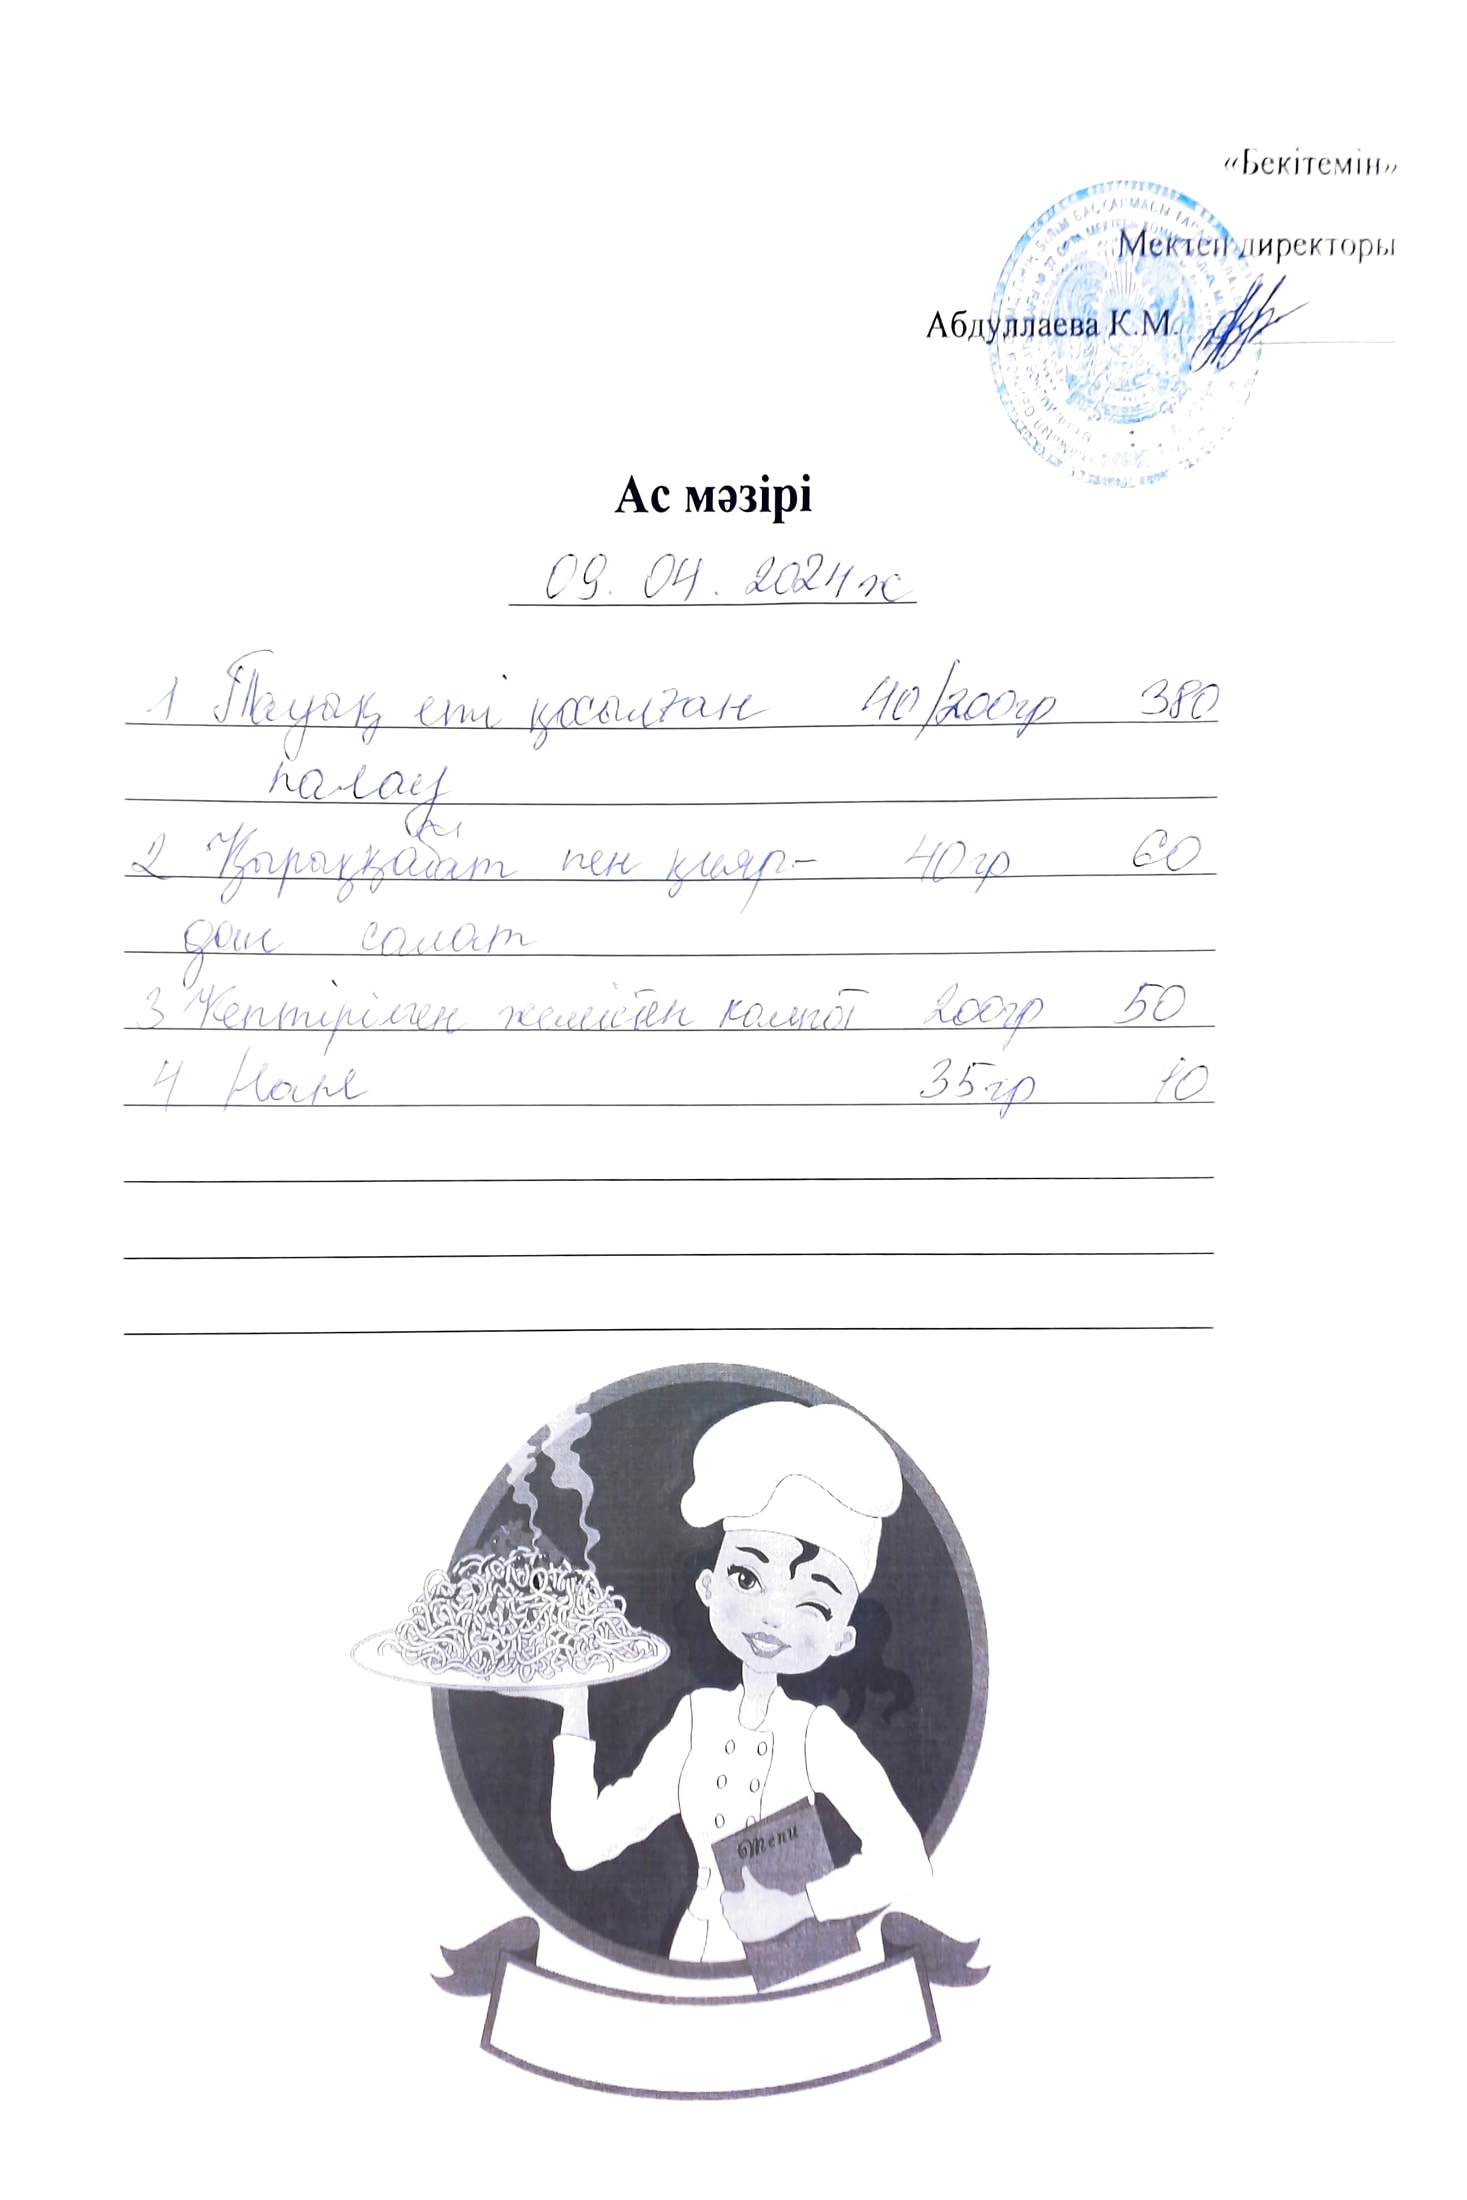 «Бекітемін»
Мектеп директоры
Абдуллаева К.М.
Ас мәзірі
09. 04. 2024 ж
1 Тауық еті қосылған 40/200гр 380
палау
2 Қырыққабат пен қияр- 40гр 60
дан салат
3 Кептірілген жемістен компот 200гр 50
4 Нан 35гр 10
Menu